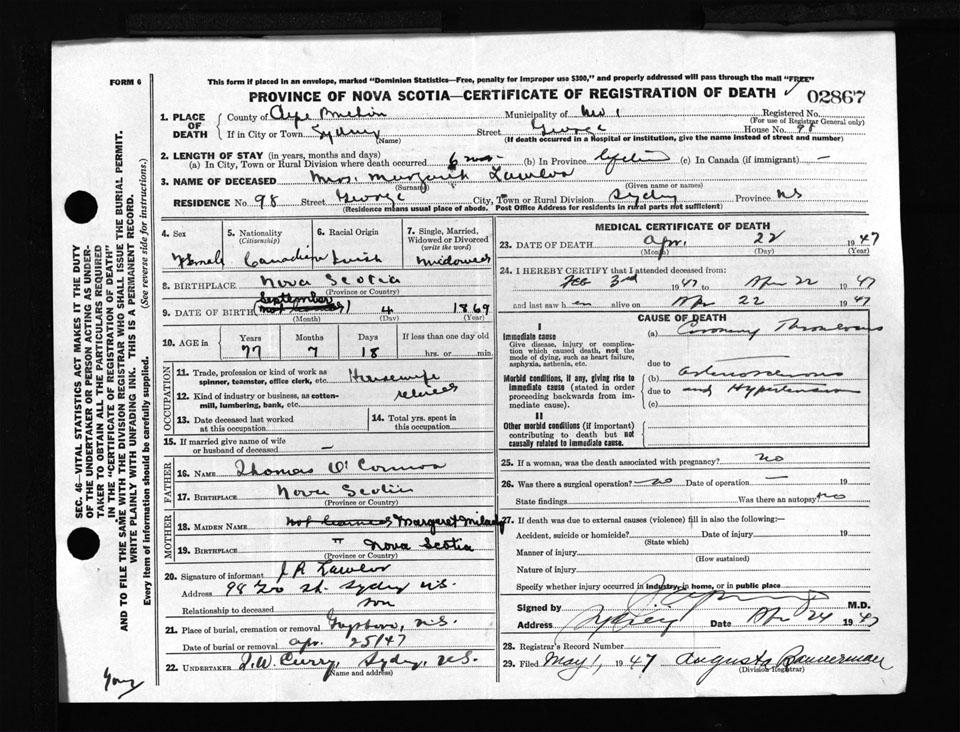 FORM 6
This form if placed in an envelope, marked "Dominion Statistics—Free, penalty for improper use $300," and properly addressed will pass through the mail "FREE"
PROVINCE OF NOVA SCOTIA—CERTIFICATE OF REGISTRATION OF DEATH
02867
1. PLACE OF DEATH
County of Cape Breton Municipality of No 1 Registered No.
(For use of Registrar General only)
If in City or Town Sydney Street George House No. 98
(Name) (If death occurred in a Hospital or institution, give the name instead of street and number)
2. LENGTH OF STAY (in years, months and days)
(a) In City, Town or Rural Division where death occurred 6 mos. (b) In Province (c) In Canada (if immigrant) —
3. NAME OF DECEASED Mrs. Margaret Lawlor
(Surname) (Given name or names)
RESIDENCE No. 98 Street George City, Town or Rural Division Sydney Province NS
(Residence means usual place of abode. Post Office Address for residents in rural parts not sufficient)
4. Sex
Female
5. Nationality (Citizenship)
Canadian
6. Racial Origin
Irish
7. Single, Married, Widowed or Divorced (write the word)
Widowed
8. BIRTHPLACE Nova Scotia
(Province or Country)
9. DATE OF BIRTH September 4 1869
(Month) (Day) (Year)
10. AGE in Years Months Days If less than one day old
77 7 18 hrs. or min.
OCCUPATION
11. Trade, profession or kind of work as spinner, teamster, office clerk, etc. Housewife
12. Kind of industry or business, as cotton-mill, lumbering, bank, etc. retired
13. Date deceased last worked at this occupation
14. Total yrs. spent in this occupation
15. If married give name of wife or husband of deceased —
FATHER
16. NAME Thomas O'Connor
17. BIRTHPLACE Nova Scotia
MOTHER
18. MAIDEN NAME not learned Margaret Milady
19. BIRTHPLACE " Nova Scotia
(Province or Country)
20. Signature of informant J.A. Lawlor
Address 98 Geo St. Sydney N.S.
Relationship to deceased son
21. Place of burial, cremation or removal Guysboro, N.S.
Date of burial or removal Apr. 25/47
22. UNDERTAKER J.W. Curry, Sydney, N.S.
(Name and address)
MEDICAL CERTIFICATE OF DEATH
23. DATE OF DEATH Apr. 22 1947
(Month) (Day) (Year)
24. I HEREBY CERTIFY that I attended deceased from:
Feb 3rd 1947 to Apr 22 1947
and last saw h er alive on Apr 22 1947
CAUSE OF DEATH
I
Immediate cause
Give disease, injury or complication which caused death, not the mode of dying, such as heart failure, asphyxia, asthenia, etc.
(a) Coronary Thrombosis
due to
Morbid conditions, if any, giving rise to immediate cause (stated in order proceeding backwards from immediate cause).
(b) Arteriosclerosis
due to and Hypertension
(c)
II
Other morbid conditions (if important) contributing to death but not causally related to immediate cause.
25. If a woman, was the death associated with pregnancy? no
26. Was there a surgical operation? no Date of operation — 19
State findings Was there an autopsy? no
27. If death was due to external causes (violence) fill in also the following:—
Accident, suicide or homicide? Date of injury 19
(State which)
Manner of injury
(How sustained)
Nature of injury
Specify whether injury occurred in industry, in home, or in public place
Signed by M.D.
Address Sydney Date Apr 24 1947
28. Registrar's Record Number
29. Filed May 1, 1947 Augusta Bannerman
(Division Registrar)
SEC. 46—VITAL STATISTICS ACT MAKES IT THE DUTY
OF THE UNDERTAKER OR PERSON ACTING AS UNDER-
TAKER TO OBTAIN ALL THE PARTICULARS REQUIRED
IN THE "CERTIFICATE OF REGISTRATION OF DEATH"
AND TO FILE THE SAME WITH THE DIVISION REGISTRAR WHO SHALL ISSUE THE BURIAL PERMIT.
WRITE PLAINLY WITH UNFADING INK. THIS IS A PERMANENT RECORD.
Every item of information should be carefully supplied. (See reverse side for instructions.)